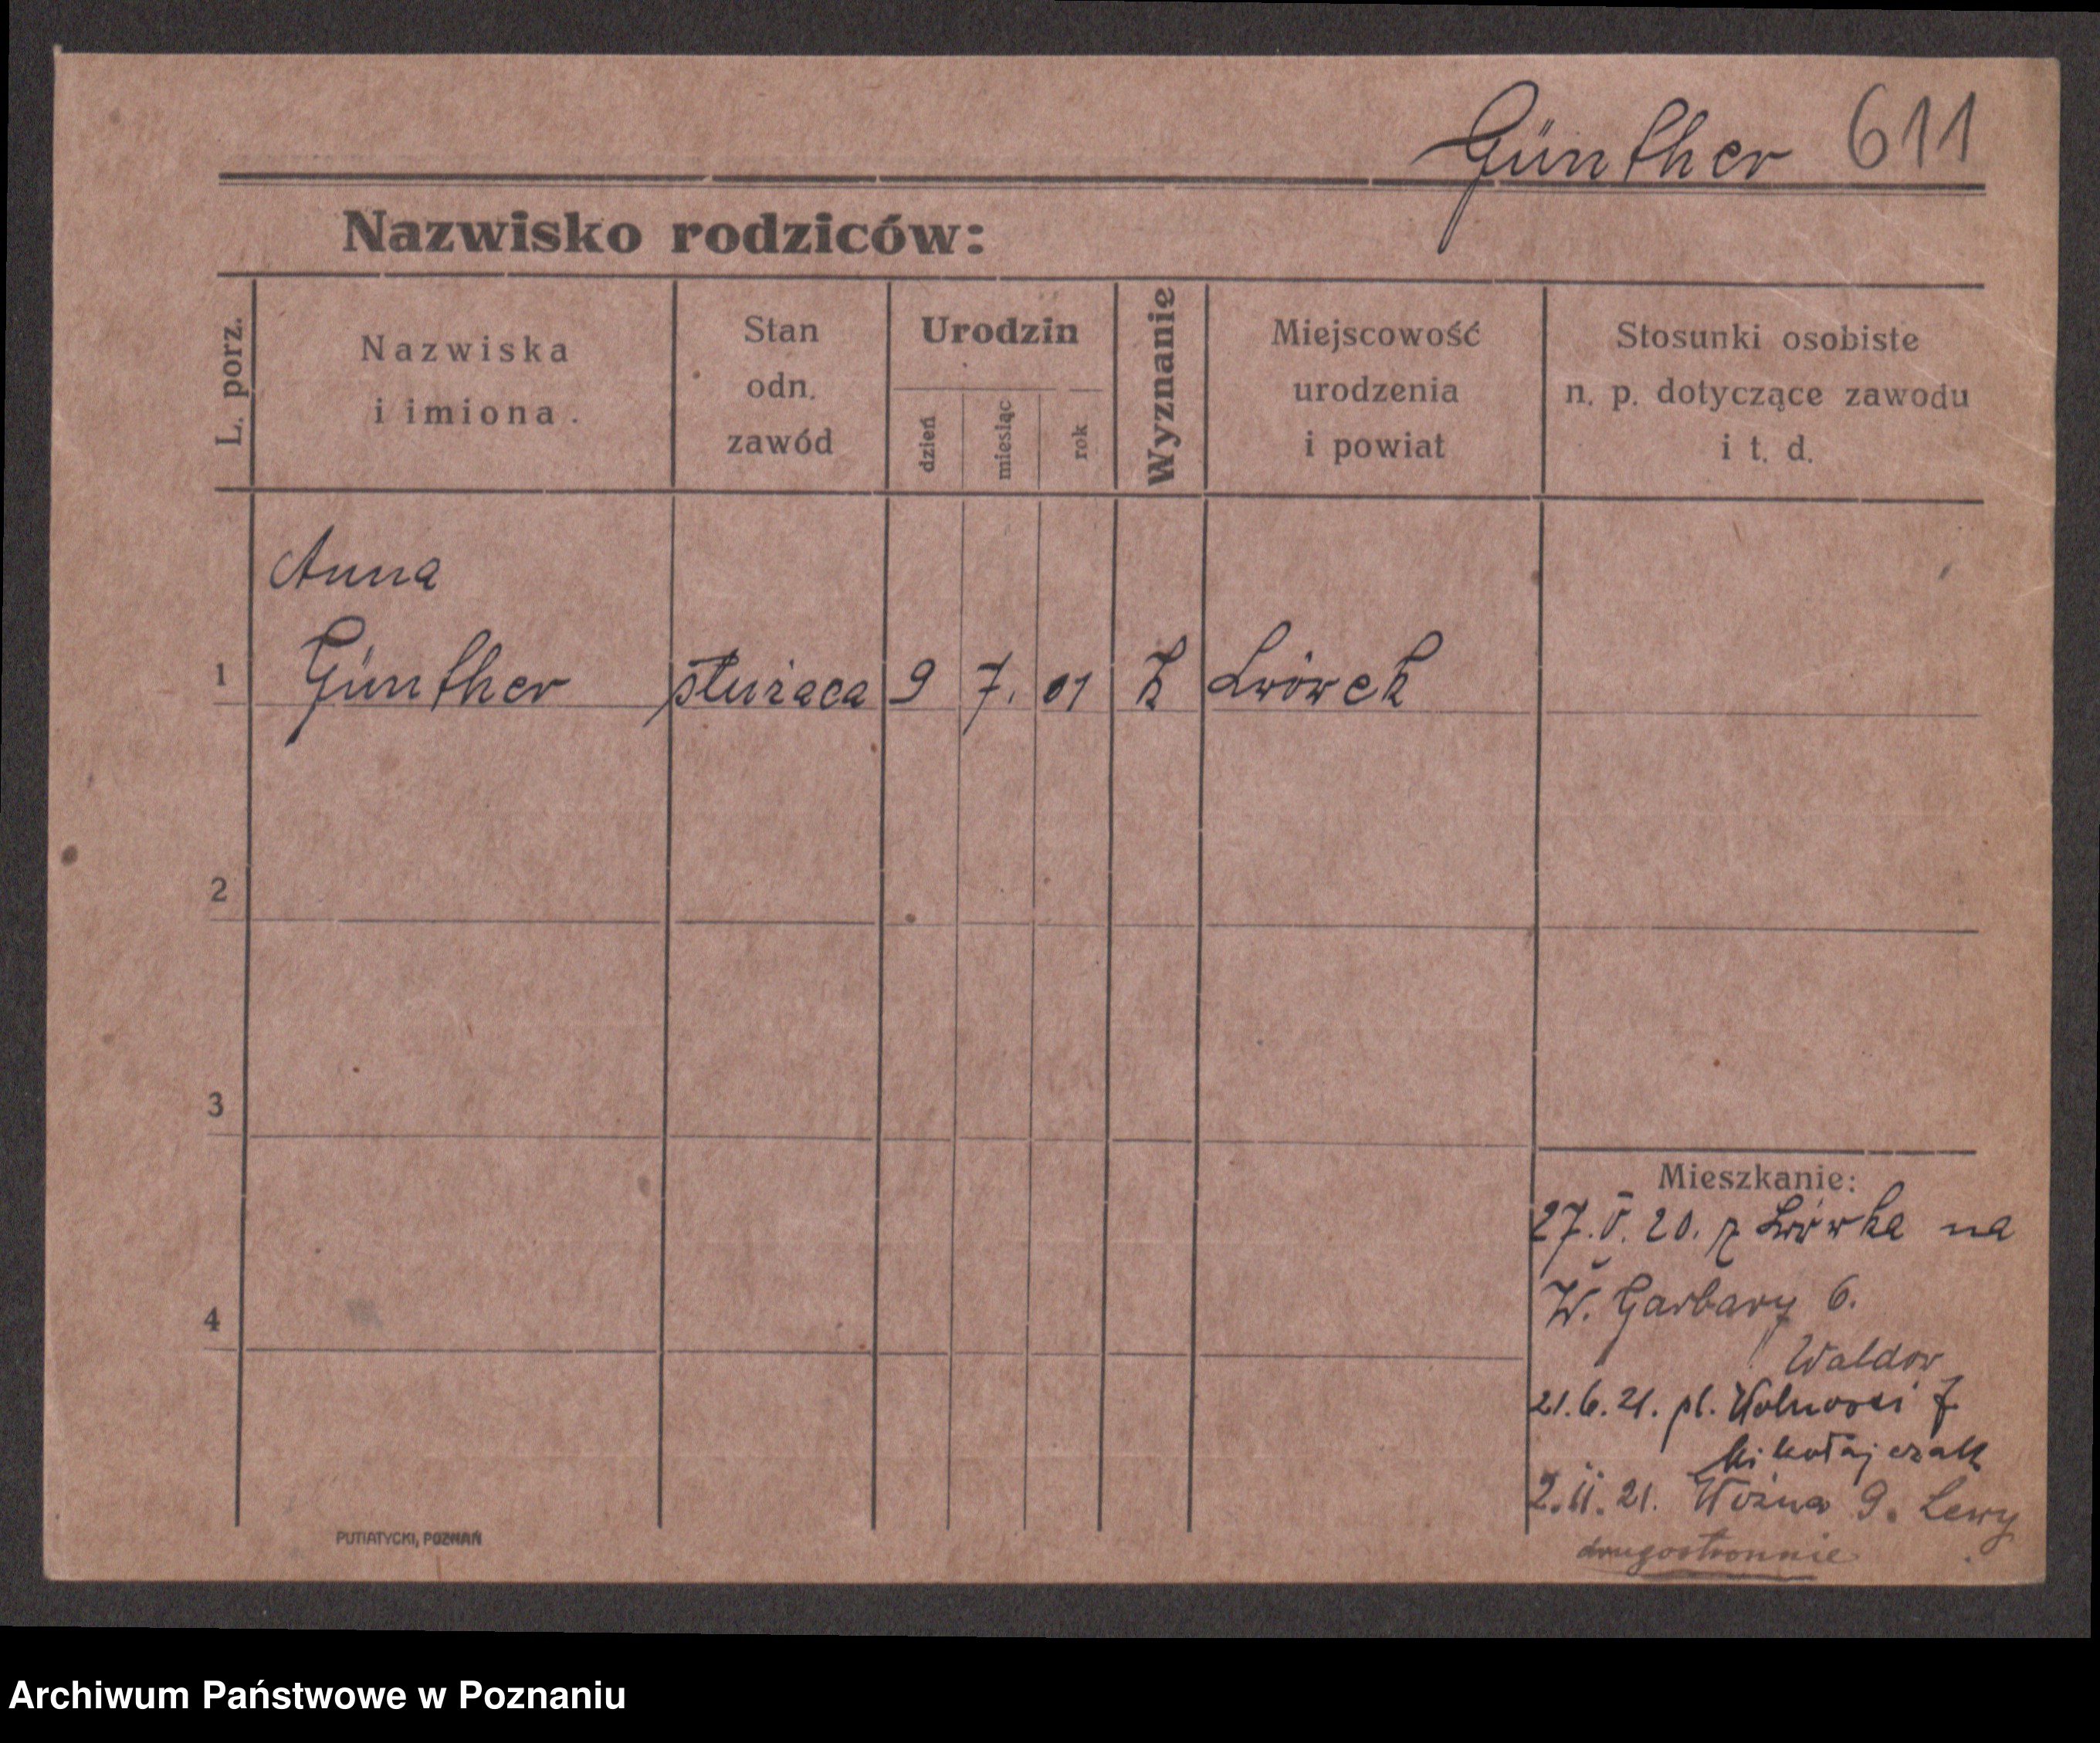 Günther 611
Nazwisko rodziców:
L. porz.
Nazwiska
i imiona.
Stan
odn.
zawód
Urodzin
dzień
miesiąc
rok
Wyznanie
Miejscowość
urodzenia
i powiat
Stosunki osobiste
n. p. dotyczące zawodu
i t. d.
Anna
1 Günther służaca 9 7. 01 k Lwówek
2
3
4
Mieszkanie:
27.V.20. z Lwówka na
W. Garbary 6.
Waldow
21.6.21. pl. Wolnosci 7
Mikołajczak
2.II.21. Wozna 9. Lewy
drugostronnie
PUTIATYCKI, POZNAŃ
Archiwum Państwowe w Poznaniu